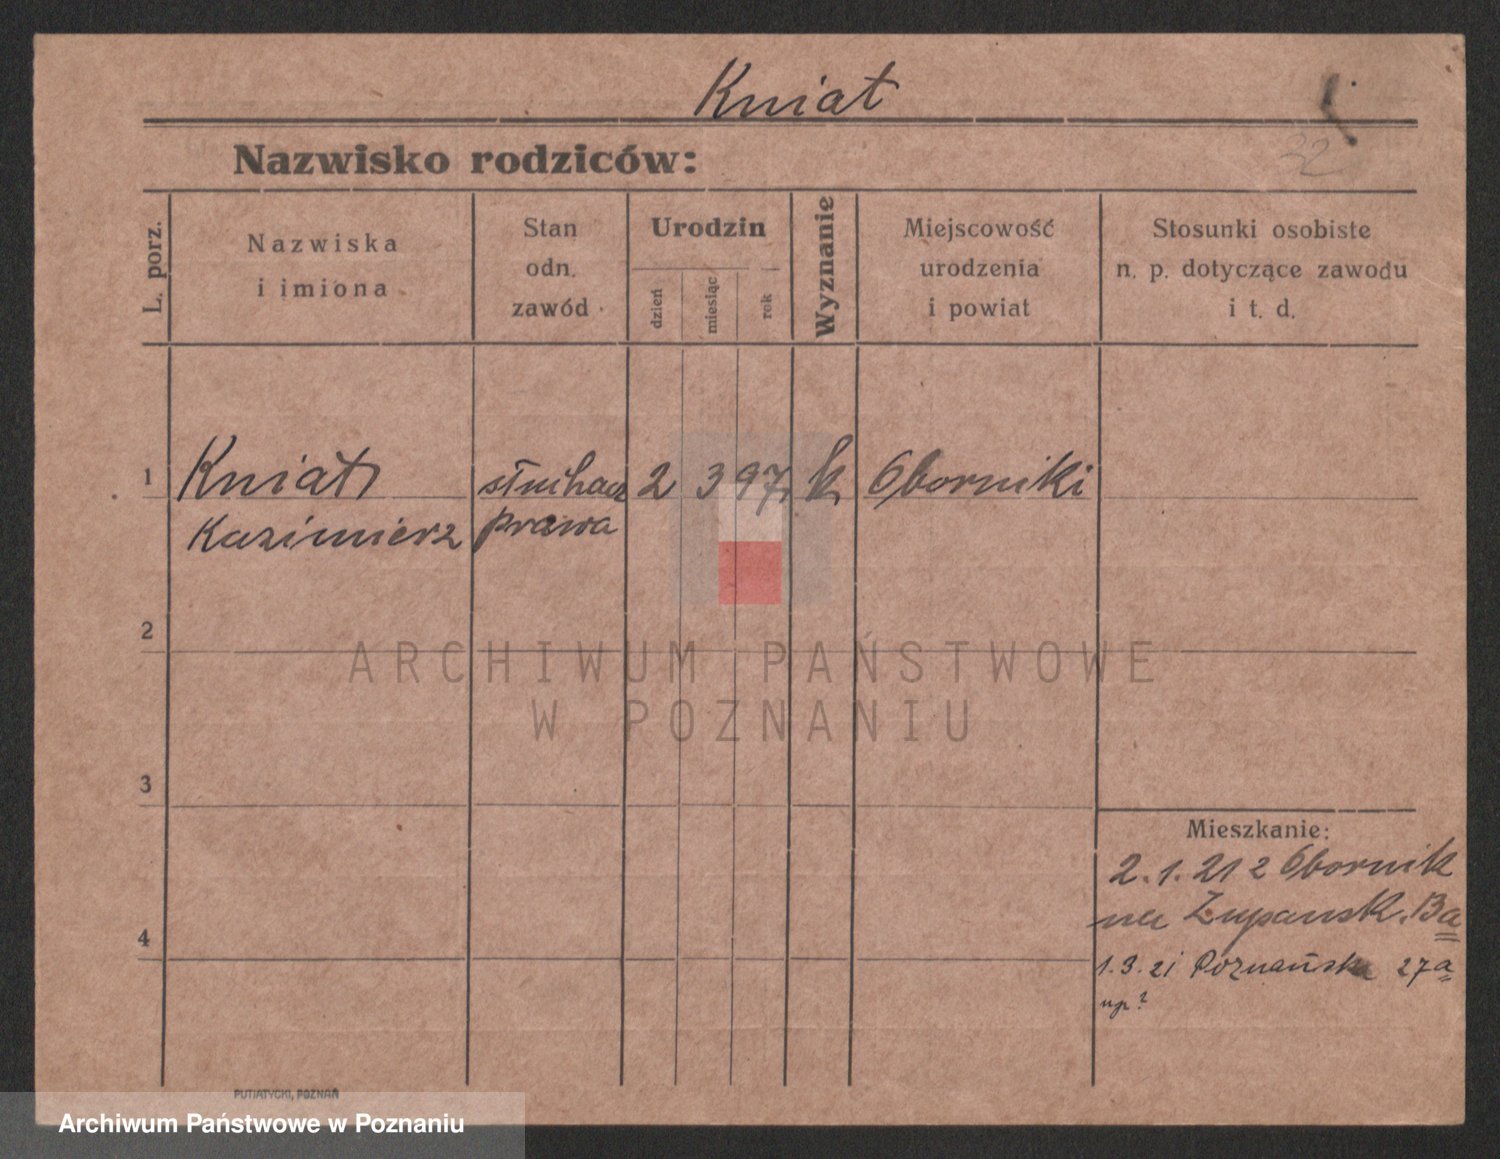 Kniat
32
Nazwisko rodziców:
L. porz.
Nazwiska
i imiona
Stan
odn.
zawód
Urodzin
dzień
miesiąc
rok
Wyznanie
Miejscowość
urodzenia
i powiat
Stosunki osobiste
n. p. dotyczące zawodu
i t. d.
1 Kniat słuchacz 2 3 97 k Oborniki
Kazimierz prawa
2
ARCHIWUM PAŃSTWOWE
W POZNANIU
3
Mieszkanie:
2.1.21 z Obornik
na Zupansk.
4
1.3.21 Poznańska 27a
PUTIATYCKI, POZNAŃ
Archiwum Państwowe w Poznaniu